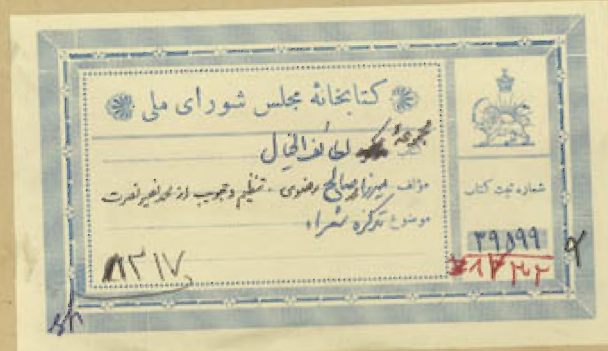 کتابخانه مجلس شورای ملی
مجموعهٔ
کتاب لطائف الخیال
مؤلف میرزا صالح رضوی - تنظیم و تبویب از محمد نصیر نصرت
موضوع تذکره شعراء
شماره ثبت کتاب
۳۹۸۹۹
۸۱۳۲۲
۸۳۱۷